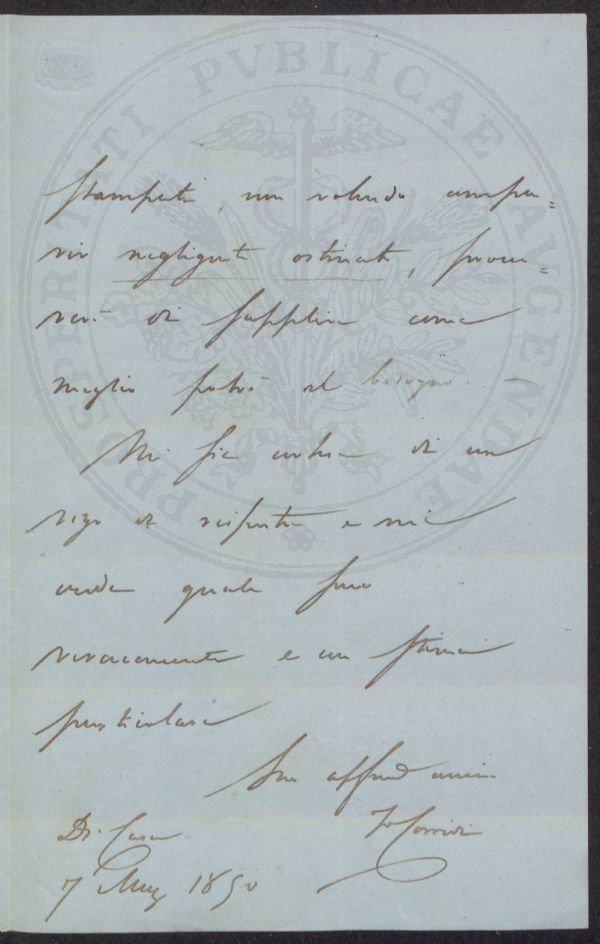 PROSPERITATI PVBLICAE AVGENDAE
stampati, non volendo compa=
rir negligente ostinato, procu=
rerò di supplire come
meglio potrò al bisogno. —
Mi sia cortese di un
rigo di risposta e mi
creda quale sono
veracemente e con stima
particolare
Suo affmo amico
Di Casa
F Corridi
7 1850